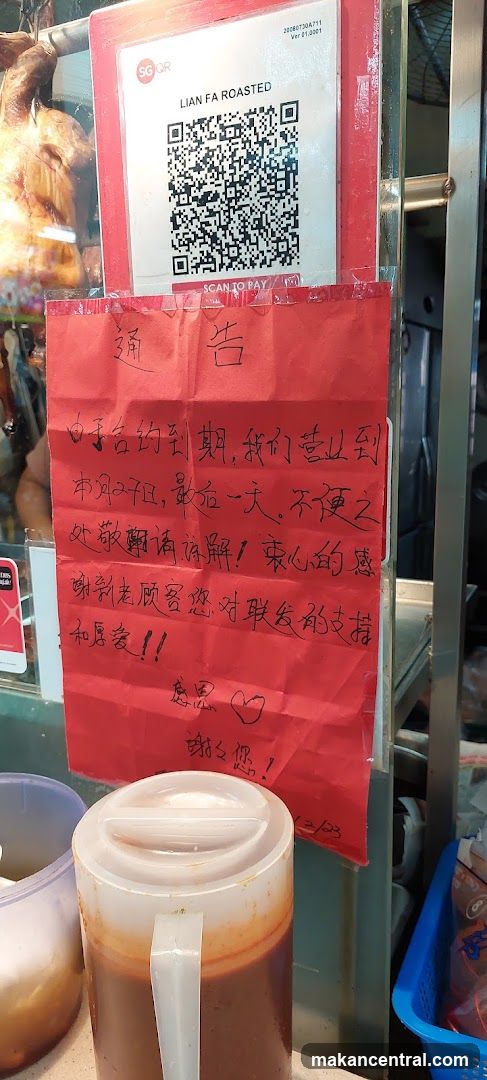 20080730A711
Ver 01.0001
SGQR
LIAN FA ROASTED
SCAN TO PAY
通 告
由于合约到期,我们营业到
本月27日,最后一天。不便之
处敬请谅解!衷心的感
谢新老顾客您对联发的支持
和厚爱!!
感恩♡
谢谢您!
/3/23
DBS
makancentral.com